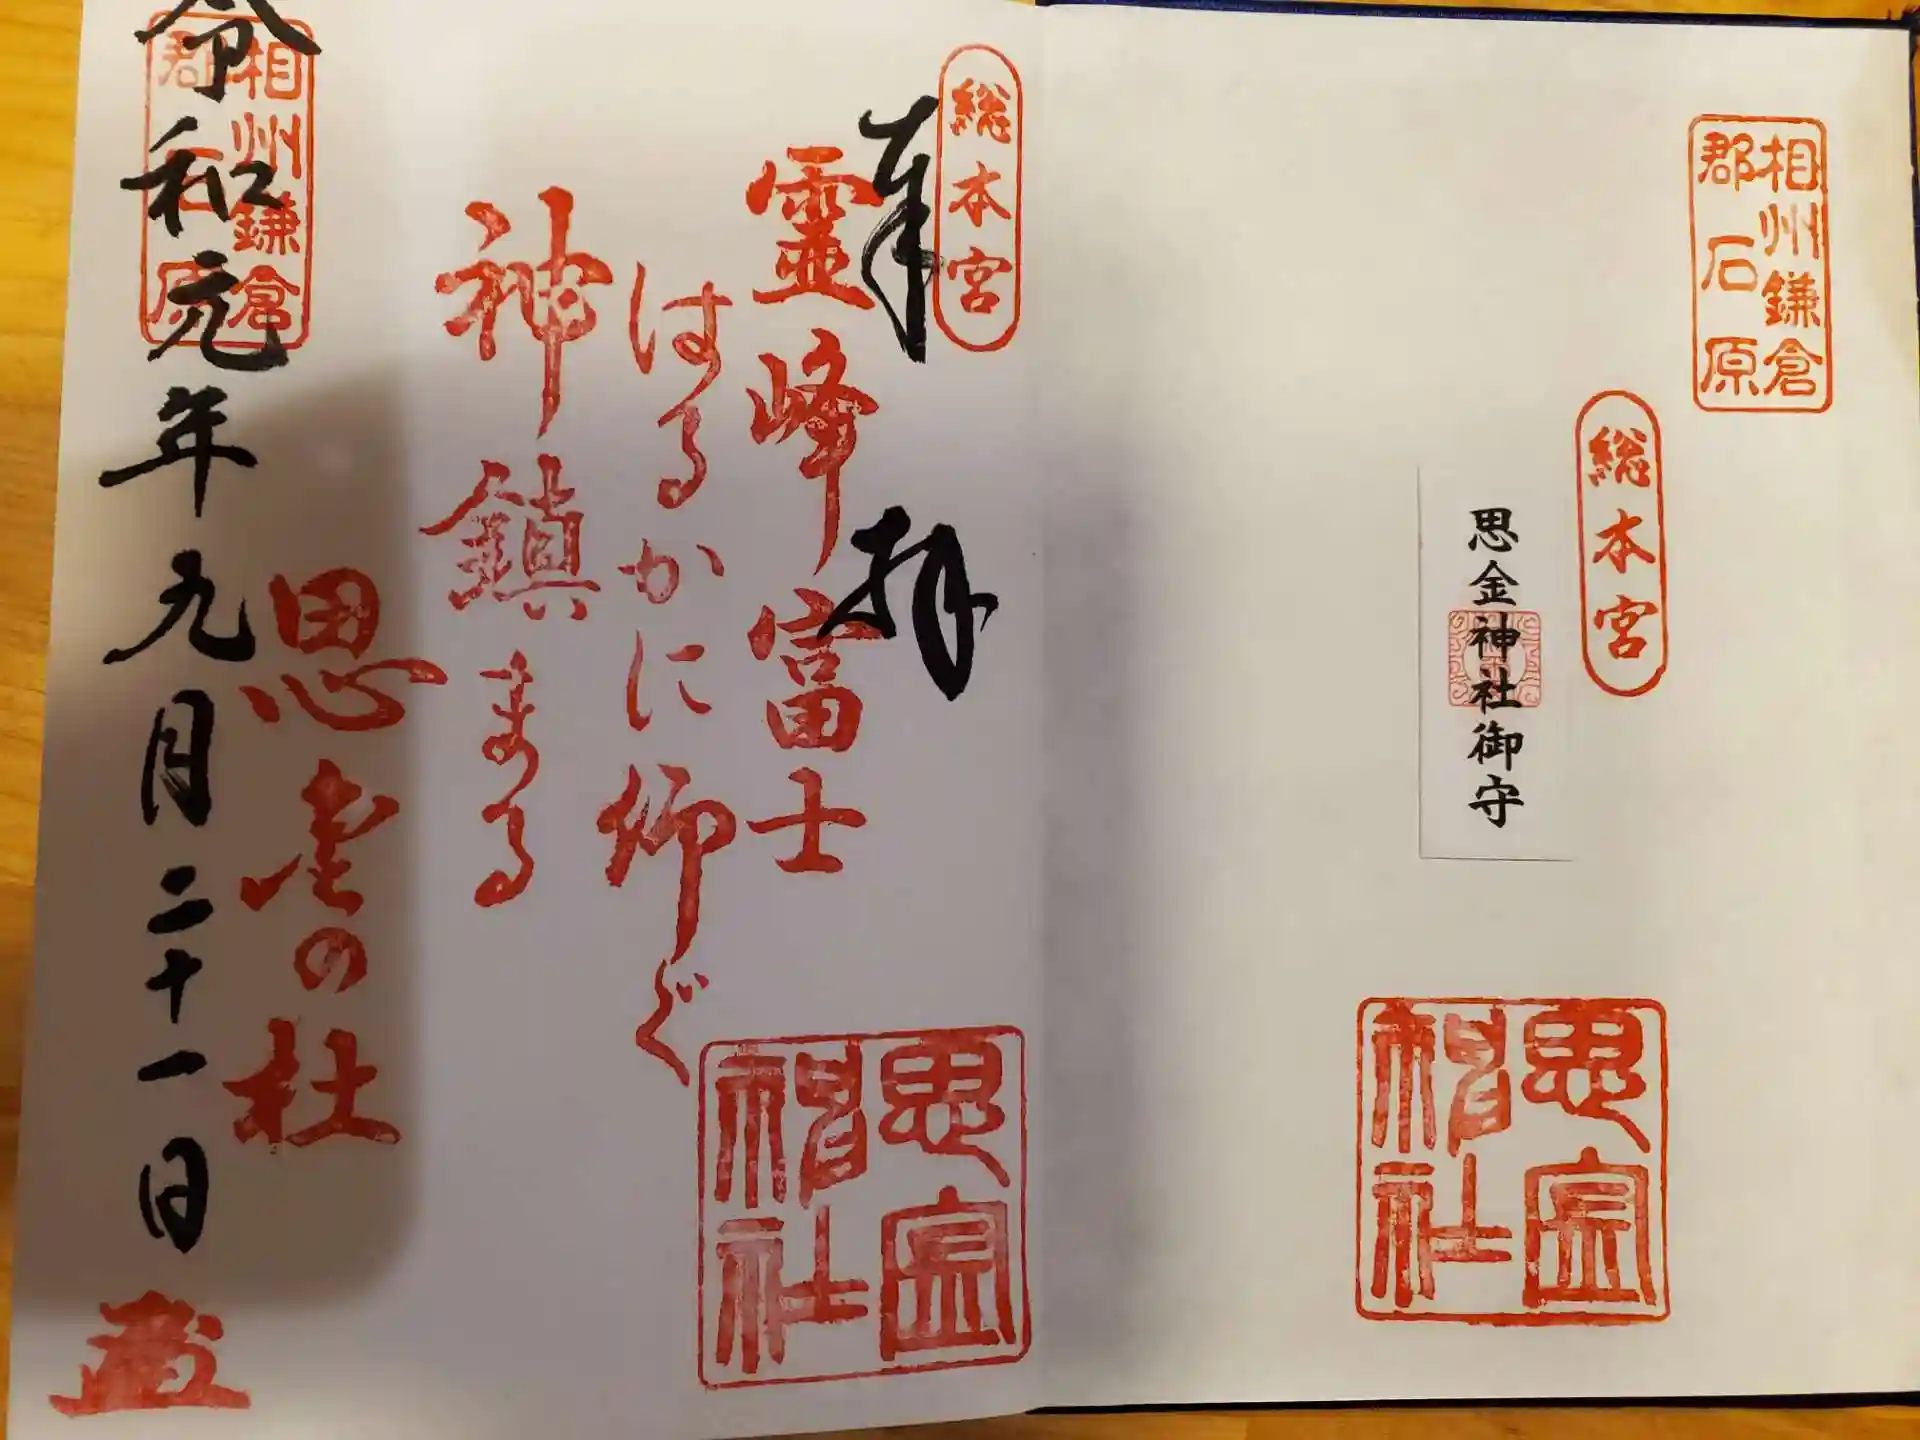 相州鎌倉
郡石原
総本宮
思金神社御守
思金
神社
総本宮
奉拝
靈峰富士
はるかに仰ぐ
神鎮まる
思金の杜
思金
神社
相州鎌倉
郡石原
令和元年九月二十一日